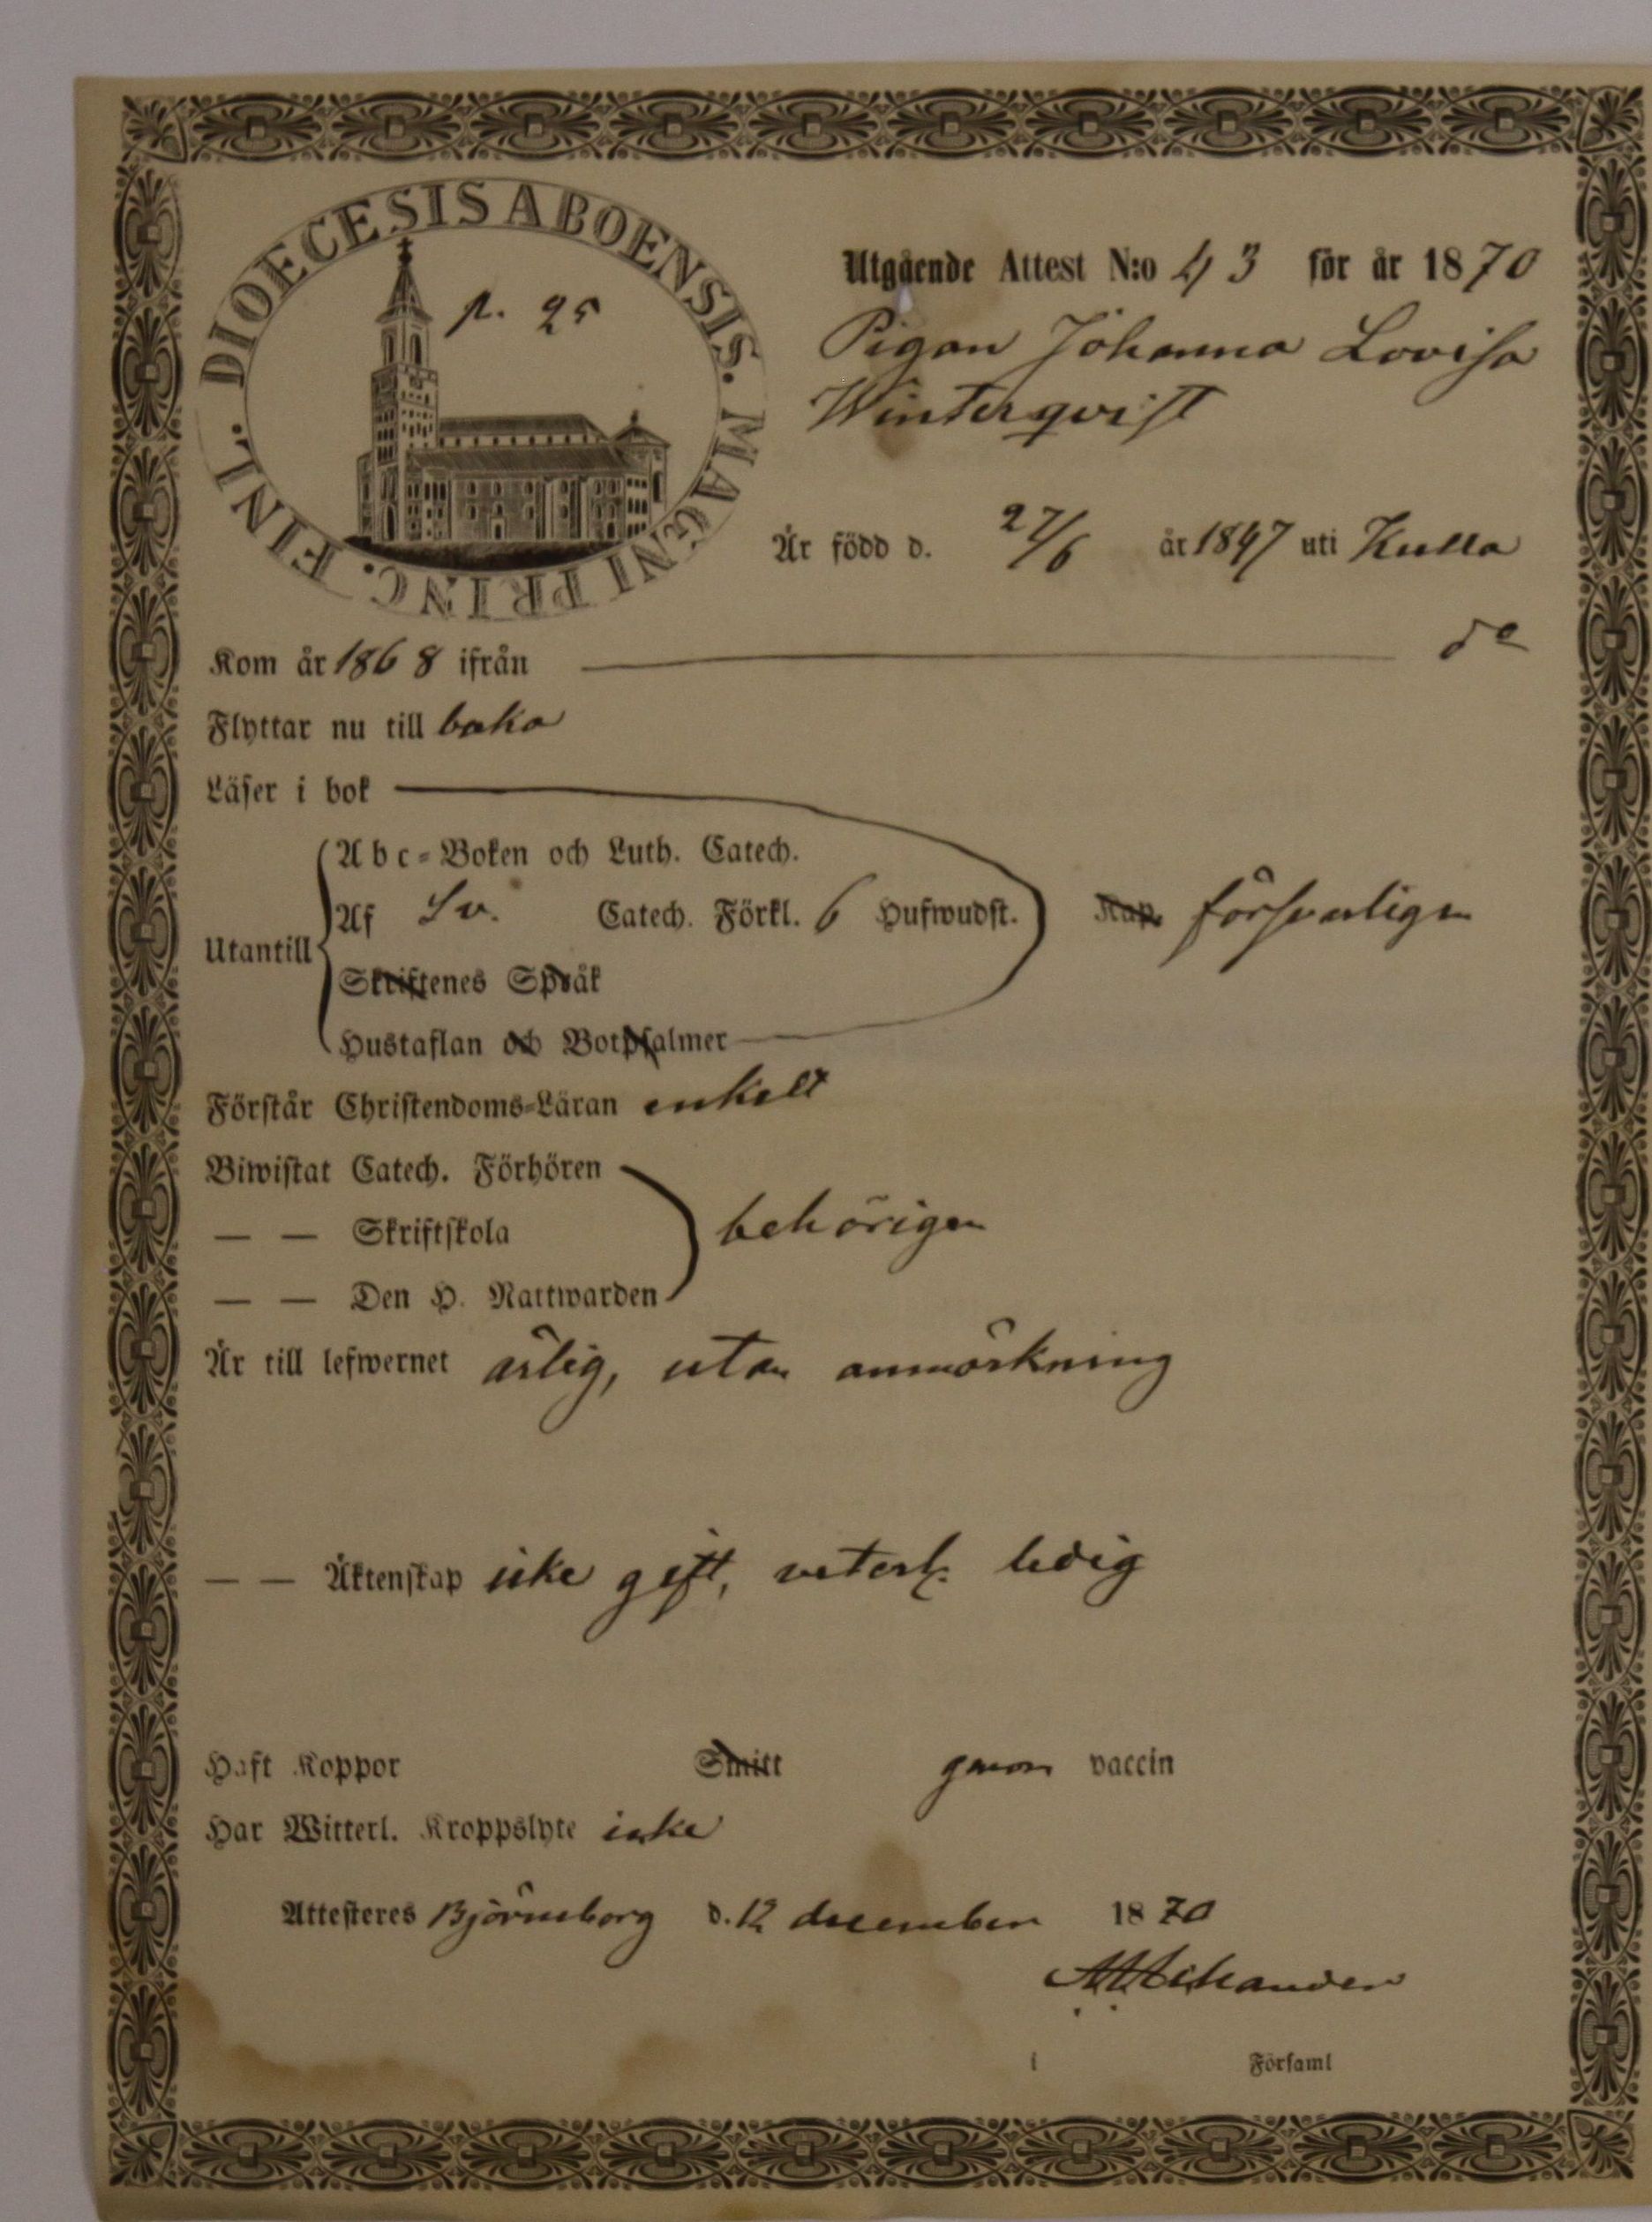 DIOECESIS ABOENSIS. MAGNI PRINC. FINL.
p. 25
Utgående Attest N:o 43 för år 1870
Pigan Johanna Lovisa
Winterqvist
Är född d. 27/6 år 1847 uti Kulla
Kom år 1868 ifrån do
Flyttar nu till baka
Läser i bok
Abc-Boken och Luth. Catech.
Utantill
Af Sv. Catech. Förkl. 6 Hufwudst. Kap. försvarligen
Skriftenes Språk
Hustaflan och Botpsalmer
Förstår Christendoms-Läran enkelt
Biwistat Catech. Förhören
— — Skriftskola behörigen
— — Den H. Nattwarden
Är till lefwernet ärlig, utan anmärkning
— — Äktenskap icke gift, veterl. ledig
Haft Koppor Smitt genom vaccin
Har Witterl. Kroppslyte icke
Attesteres Björneborg d. 12 december 1870
i Församl